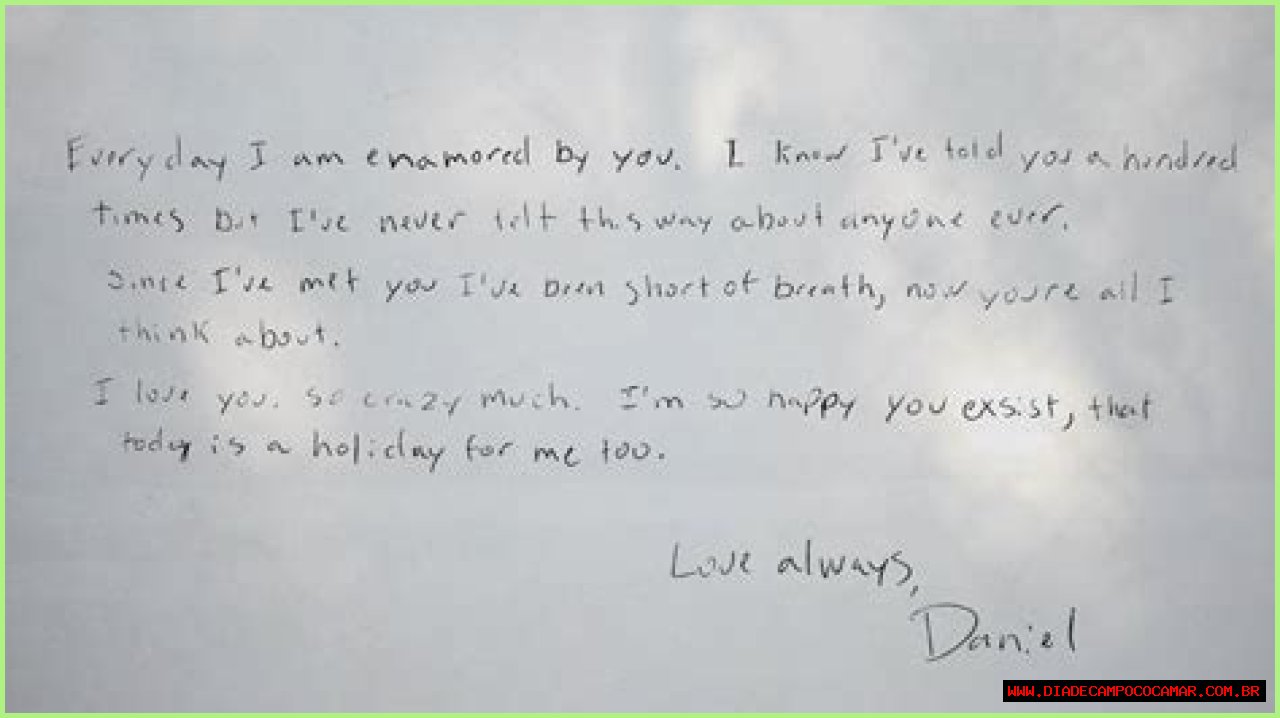 Everyday I am enamored by you. I know I've told you a hundred
times but I've never felt this way about anyone ever.
Since I've met you I've been short of breath, now you're all I
think about.
I love you. so crazy much. I'm so happy you exsist, that
today is a holiday for me too.
Love always,
Daniel
WWW.DIADECAMPOCOCAMAR.COM.BR